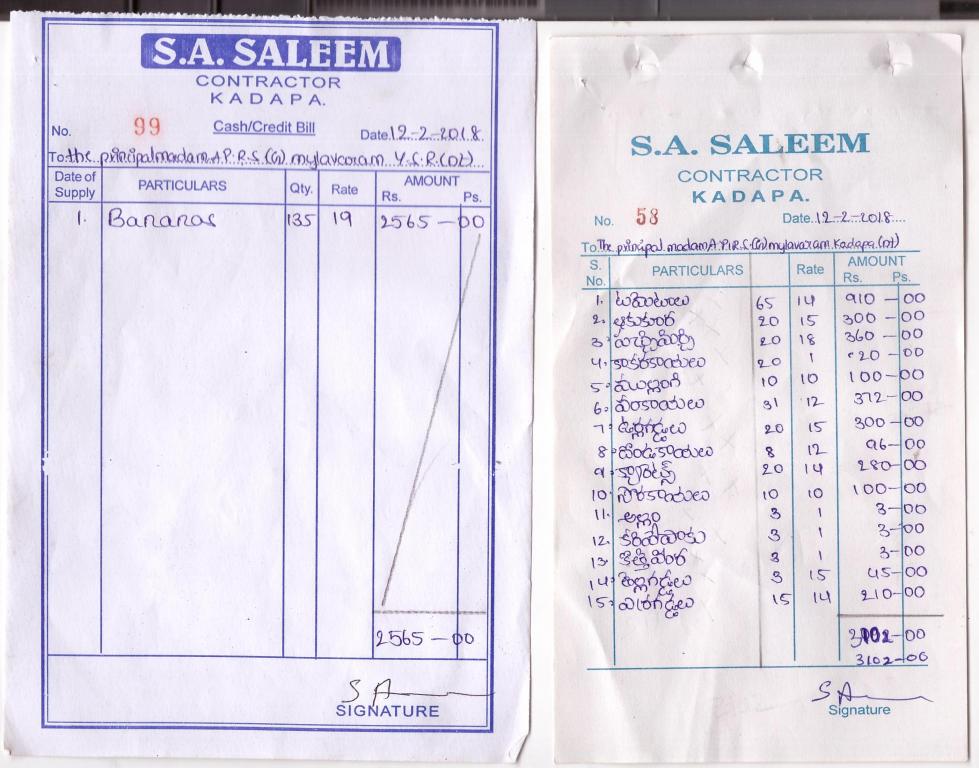 S.A. SALEEM
CONTRACTOR
KADAPA.
No. 99 Cash/Credit Bill Date.12-2-2018.
To the principal madam A.P.R.S.(G) mylavaram Y.S.R.(Dt)
Date of Supply PARTICULARS Qty. Rate AMOUNT Rs. Ps.
1. Bananas 135 19 2565-00
2565-00
S A
SIGNATURE
S.A. SALEEM
CONTRACTOR
KADAPA.
No. 58 Date.12-2-2018
To The principal madam A.P.R.S(G) mylavaram Kadapa (Dt)
S. No. PARTICULARS Rate AMOUNT Rs. Ps.
1. టమాటాలు 65 14 910-00
2. ఆకుకూర 20 15 300-00
3. పచ్చిమిర్చి 20 18 360-00
4. కాకరకాయలు 20 1 20-00
5. ముల్లంగి 10 10 100-00
6. వంకాయలు 31 12 372-00
7. ఉర్లగడ్డలు 20 15 300-00
8. బెండకాయలు 8 12 96-00
9. క్యారెట్స్ 20 14 280-00
10. సొరకాయలు 10 10 100-00
11. అల్లం 3 1 3-00
12. కరివేపాకు 3 1 3-00
13. కొత్తిమీర 3 1 3-00
14. తెల్లగడ్డలు 3 15 45-00
15. ఎర్రగడ్డలు 15 14 210-00
3102-00
3102-00
S A
Signature